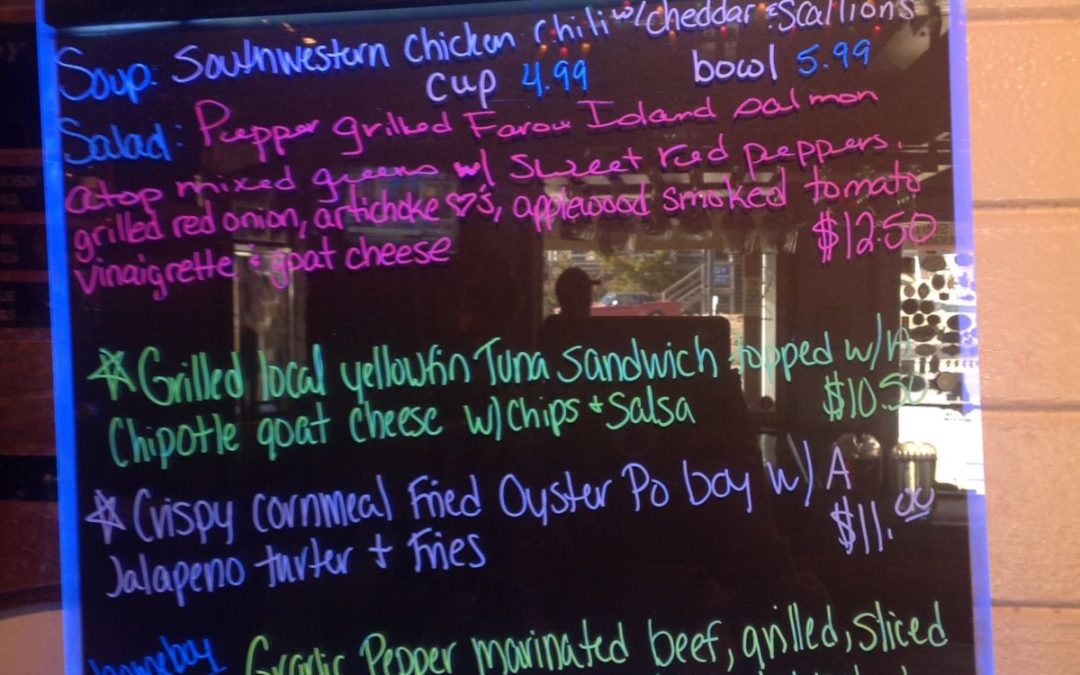 Soup: Southwestern Chicken Chili w/cheddar & scallions
cup 4.99 bowl 5.99
Salad: Pepper grilled Faroe Island salmon
atop mixed greens w/ sweet red peppers,
grilled red onion, artichoke ♡'s, applewood smoked tomato
vinaigrette & goat cheese $12.50
☆Grilled local yellowfin Tuna Sandwich topped w/A
Chipotle goat cheese w/chips + Salsa $10.50
☆Crispy cornmeal Fried Oyster Po boy w/ A
Jalapeno turter + Fries $11.00
Garlic Pepper marinated beef, grilled, sliced